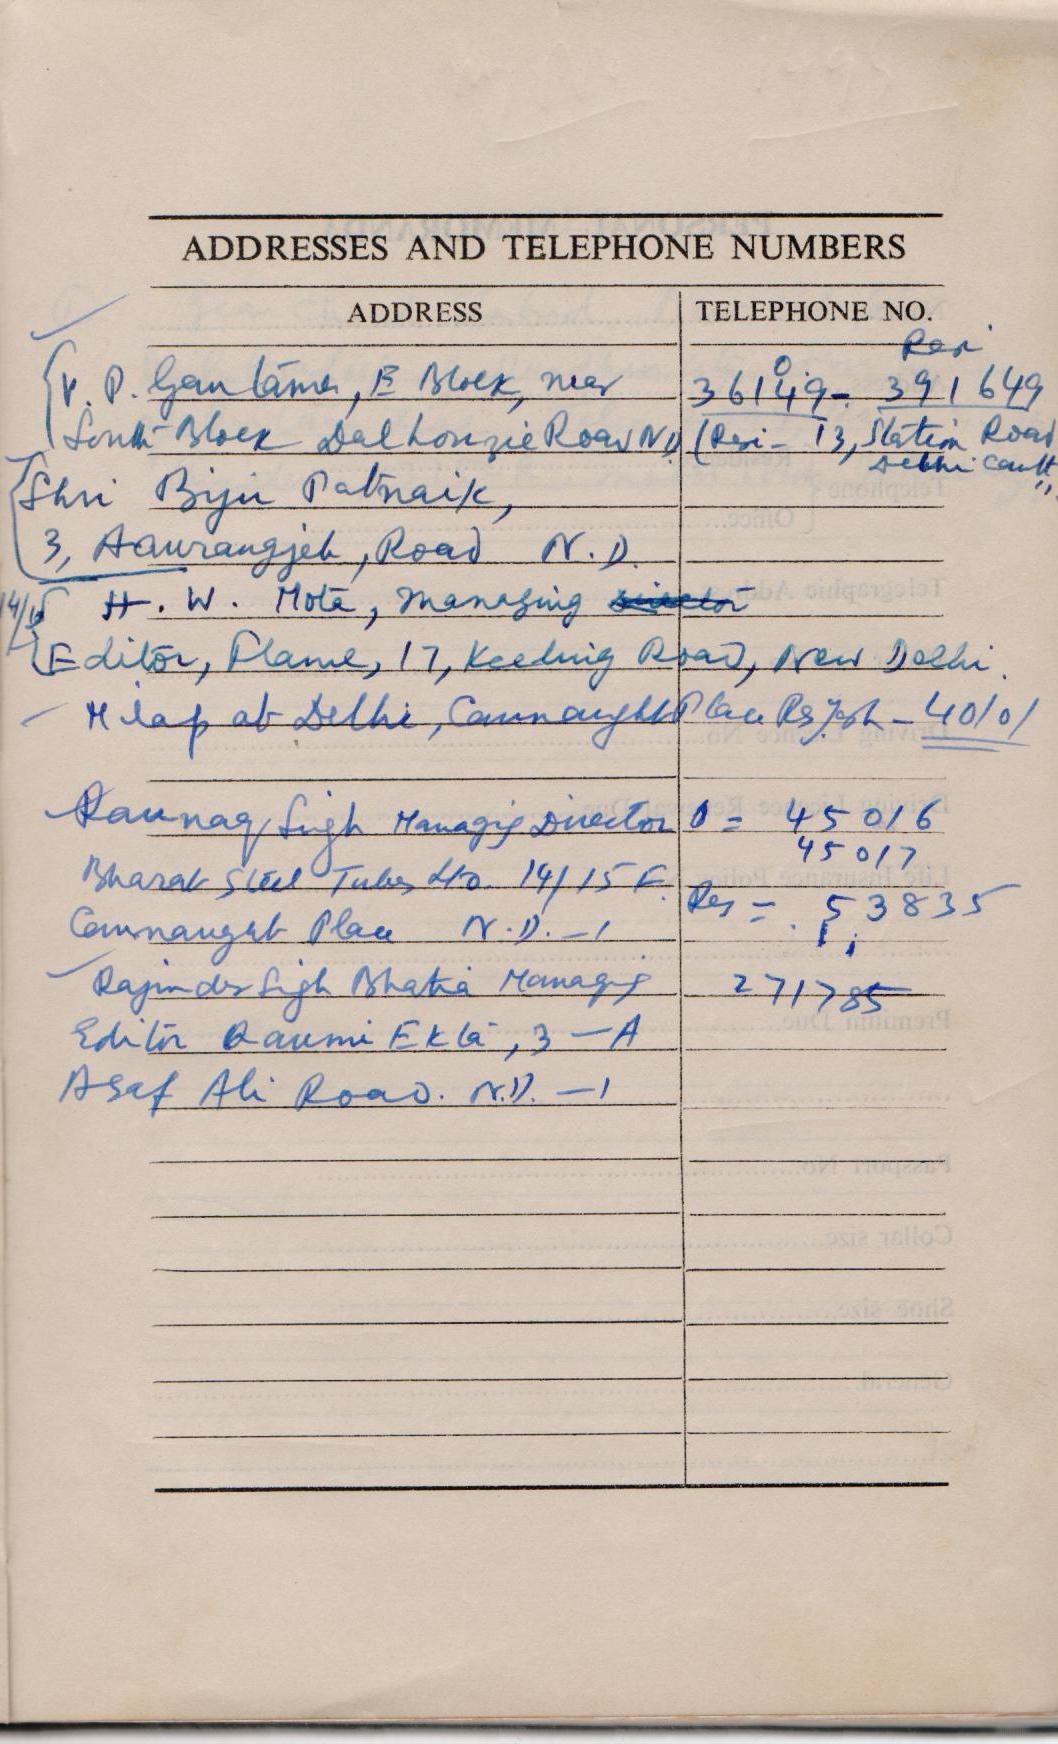 ADDRESSES AND TELEPHONE NUMBERS
ADDRESS TELEPHONE NO.
Resi
O
V. P. Gautama, E Block, near 36149 - 391649
South Block Dalhousie Road N.D. (Resi - 13, Station Road
Delhi Cantt
Shri Biju Patnaik,
3, Aaurangjeb, Road N.D.
H. W. Mota, Managing
Editor, Flame, 17, Keeling Road, New Delhi.
Milap at Delhi, Connaught Place - 40101
Raunaq Singh Managing Director O = 45016
45017
Bharat Steel Tubes Ltd. 14/15 F.
Res = 53835
Connaught Place N.D. - 1
Rajinder Singh Bhatia Managing 271785
Editor Qaumi Ekta, 3 - A
Asaf Ali Road. N.D. - 1